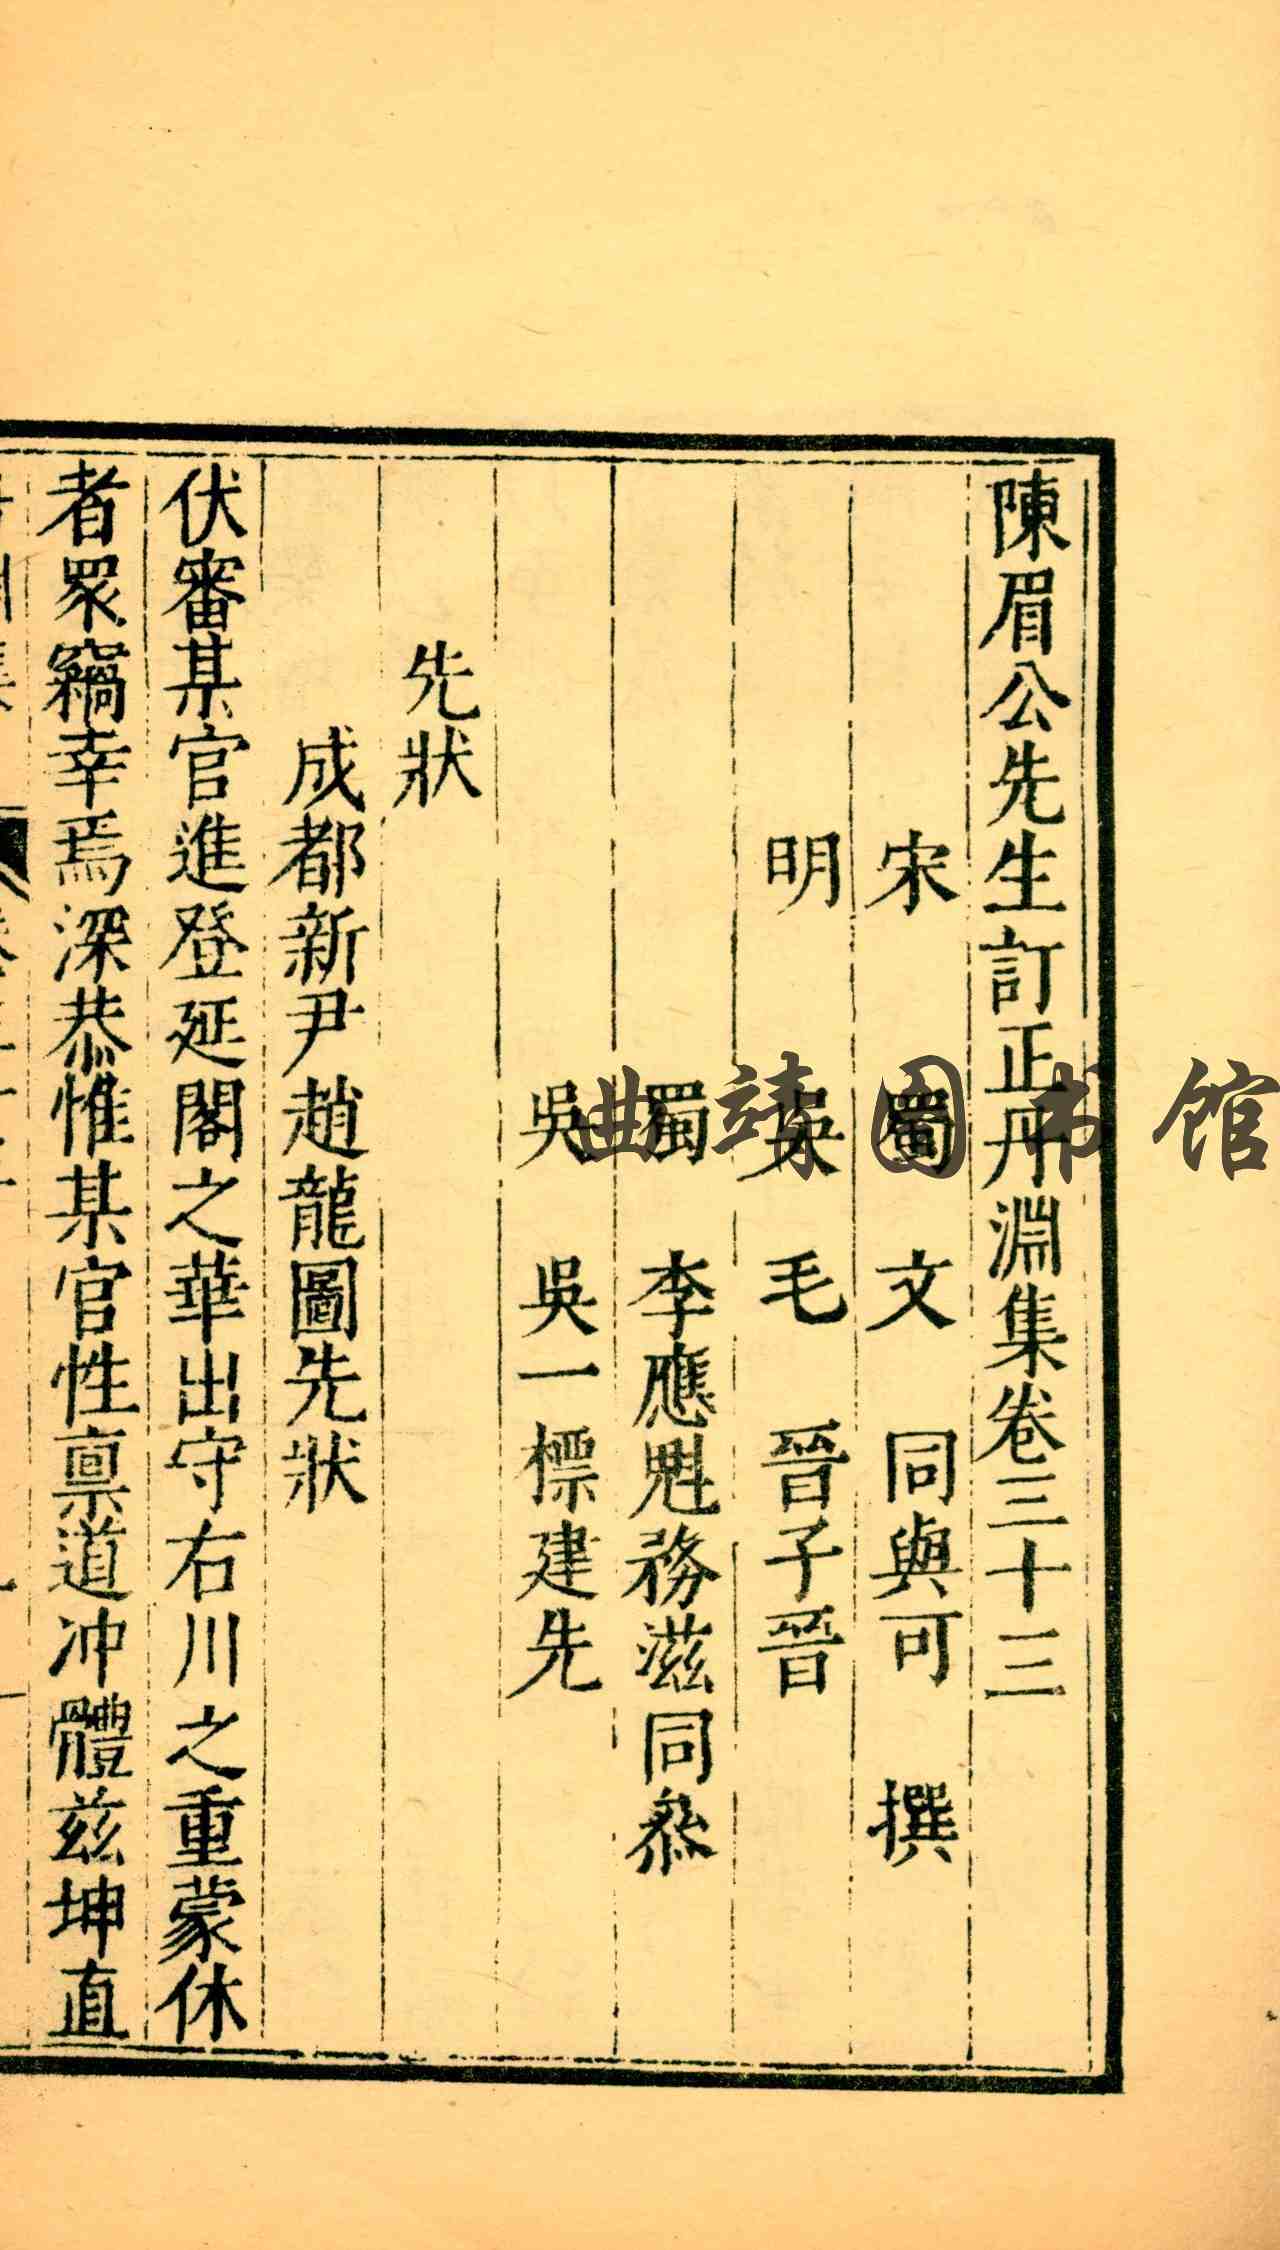 陳眉公先生訂正丹淵集卷三十三
宋　蜀　文　同與可　撰
明　吳　毛　晉子晉
蜀　李應魁務滋同叅
吳　吳一標建先
先狀
成都新尹趙龍圖先狀
伏審某官進登延閣之華出守右川之重蒙休
者眾竊幸焉深恭惟某官性禀道冲體兹坤直
曲靖图书馆